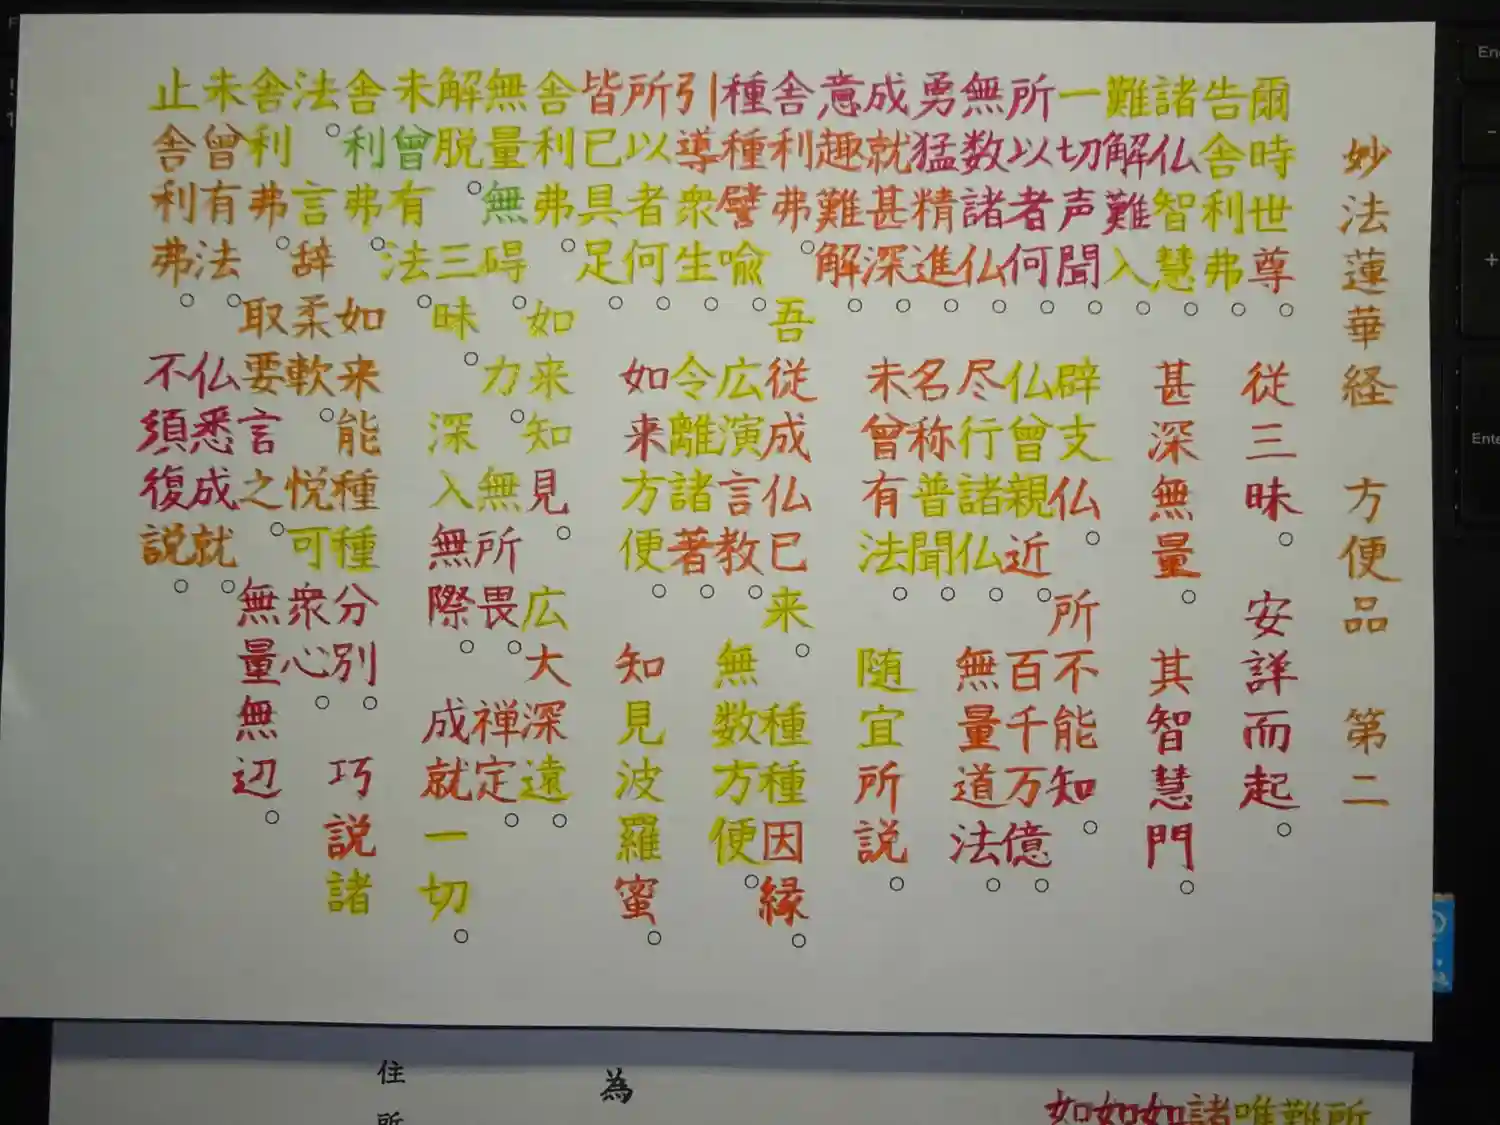 妙法蓮華経 方便品 第二
爾時世尊。従三昧。安詳而起。
告舎利弗。
諸仏智慧。甚深無量。其智慧門。
難解難入。
一切声聞。辟支仏。所不能知。
所以者何。仏曾親近。百千万億。
無数諸仏。尽行諸仏。無量道法。
勇猛精進。名称普聞。
成就甚深。未曾有法。随宜所説。
意趣難解。
舎利弗。吾従成仏已来。種種因縁。
種種譬喩。広演言教。無数方便。
引導衆生。令離諸著。
所以者何。如来方便。知見波羅蜜。
皆已具足。
舎利弗。如来知見。広大深遠。
無量無碍。力。無所畏。禅定。
解脱。三昧。深入無際。成就一切。
未曾有法。
舎利弗。如来能種種分別。巧説諸
法。言辞柔軟。悦可衆心。
舎利弗。取要言之。無量無辺。
未曾有法。仏悉成就。
止舎利弗。不須復説。
所
難
唯
諸
如
如
如
為
住所